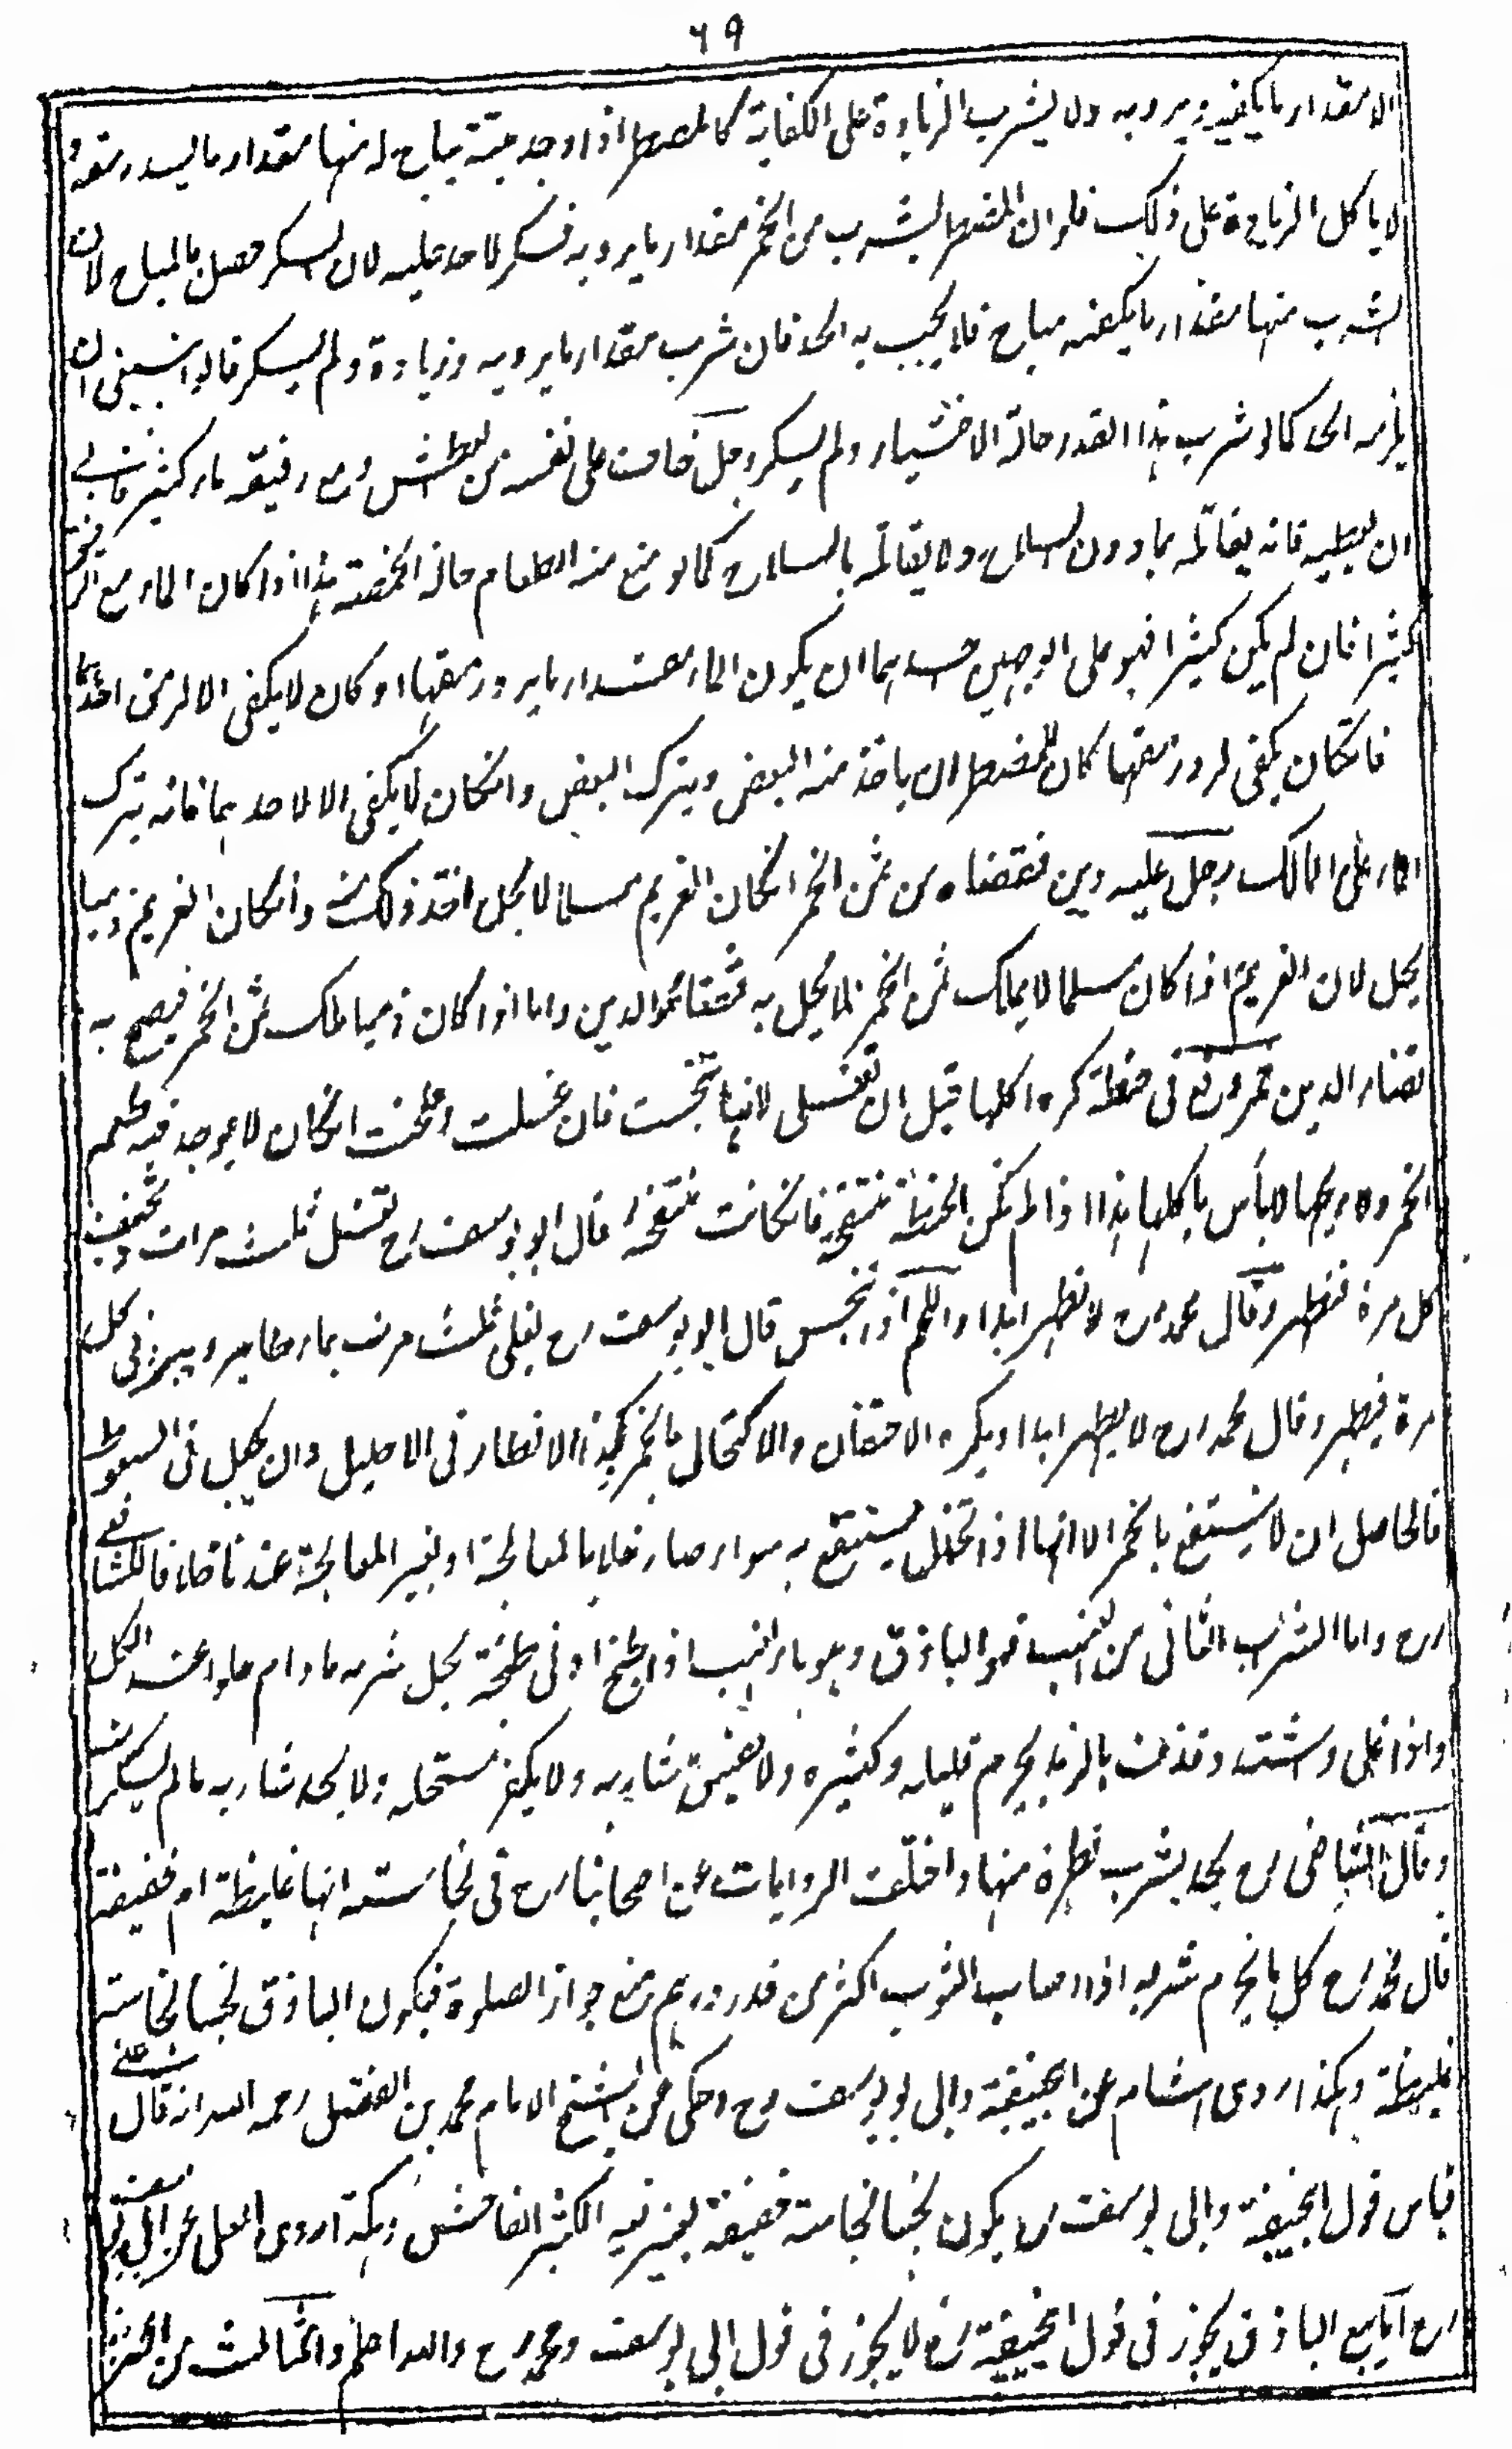 ٦٩
الا مقدار ما يكفيه ويرويه ولا يشرب الزيادة على الكفاية كالمضطر اذا وجد ميتة يباح له منها مقدار ما يسد رمقه و
لا ياكل الزيادة على ذلك فلو ان المضطر شرب من الخمر مقدار ما يرويه فسكر لا حد عليه لان السكر حصل بالمباح لان
الشرب منها مقدار ما يكفيه مباح فلا يجب به الحد فان شرب مقدار ما يرويه وزيادة ولم يسكر قالوا ينبغي ان
يلزمه الحد كما لو شرب هذا القدر حالة الاختيار ولم يسكر رجل خاف على نفسه من العطش ومع رفيقه ماء كثير فابى
ان يعطيه فانه يقاتله بما دون السلاح ولا يقاتله بالسلاح كما لو منع منه الطعام حالة المخمصة هذا اذا كان الماء مع الرفيق
كثيرا فان لم يكن كثيرا فهو على الوجهين احدهما ان يكون الماء مقدار ما يرد رمقهما او كان لا يكفى الا لرمق احدهما
فانكان يكفى لرد رمقهما كان للمضطر ان ياخذ منه البعض ويترك البعض وانكان لا يكفى الا لاحدهما فانه يترك
الماء على المالك رجل عليه دين فقضاه من ثمن الخمر انكان الغريم مسلما لا يحل اخذ ذلك منه وانكان الغريم ذميا
يحل لان الغريم اذا كان مسلما لا يملك ثمن الخمر فلا يحل به قضاء الدين واما اذا كان ذميا ملك ثمن الخمر فيصح به
قضاء الدين خمر وقع فى حنطة كره اكلها قبل ان تغسل لانها تنجست فان غسلت وطحنت انكان لا يوجد فيه طعم
الخمر ولا ريحها لا بأس باكلها هذا اذا لم تكن الحنطة منتفخة فانكانت منتفخة قال ابو يوسف رح تغسل ثلث مرات وتجفف
كل مرة فتطهر وقال محمد رح لا تطهر ابدا واللحم اذا تنجس قال ابو يوسف رح يغلى ثلث مرات بماء طاهر ويبرد فى كل
مرة فيطهر وقال محمد رح لا يطهر ابدا ويكره الاحتقان والاكتحال بالخمر وكذا الاقطار فى الاحليل وان يجعل فى السعوط
فالحاصل ان لا ينتفع بالخمر الا انها اذا تخلل ينتفع به سواء صار خلا بالمعالجة او بغير المعالجة عندنا خلافا للشافعى
رح واما الشراب الثانى من العنب فهو الباذق وهو ماء العنب اذا طبخ ادنى طبخة يحل شربه ما دام حلوا عند الكل
واذا غلى واشتد وقذف بالزبد يحرم قليله وكثيره ولا يفسق شاربه ولا يكفر مستحله ولا يحد شاربه ما لم يسكر منه
وقال الشافعى رح يحد بشرب قطرة منها واختلفت الروايات عن اصحابنا رح فى نجاسته انها غليظة ام خفيفة
قال محمد رح كل ما يحرم شربه اذا اصاب الثوب اكثر من قدر درهم يمنع جواز الصلوة فيكون الباذق نجسا نجاسة
غليظة وهكذا روى هشام عن ابيحنيفة وابى يوسف رح وحكى عن الشيخ الامام محمد بن الفضل رحمه الله انه قال على
قياس قول ابيحنيفة وابى يوسف رح يكون نجسا نجاسة خفيفة يعتبر فيه الكثير الفاحش وهكذا روى المعلى عن ابى يوسف
رح اما بيع الباذق يجوز فى قول ابيحنيفة رح لا يجوز فى قول ابى يوسف ومحمد رح والله اعلم والثالث من العنب